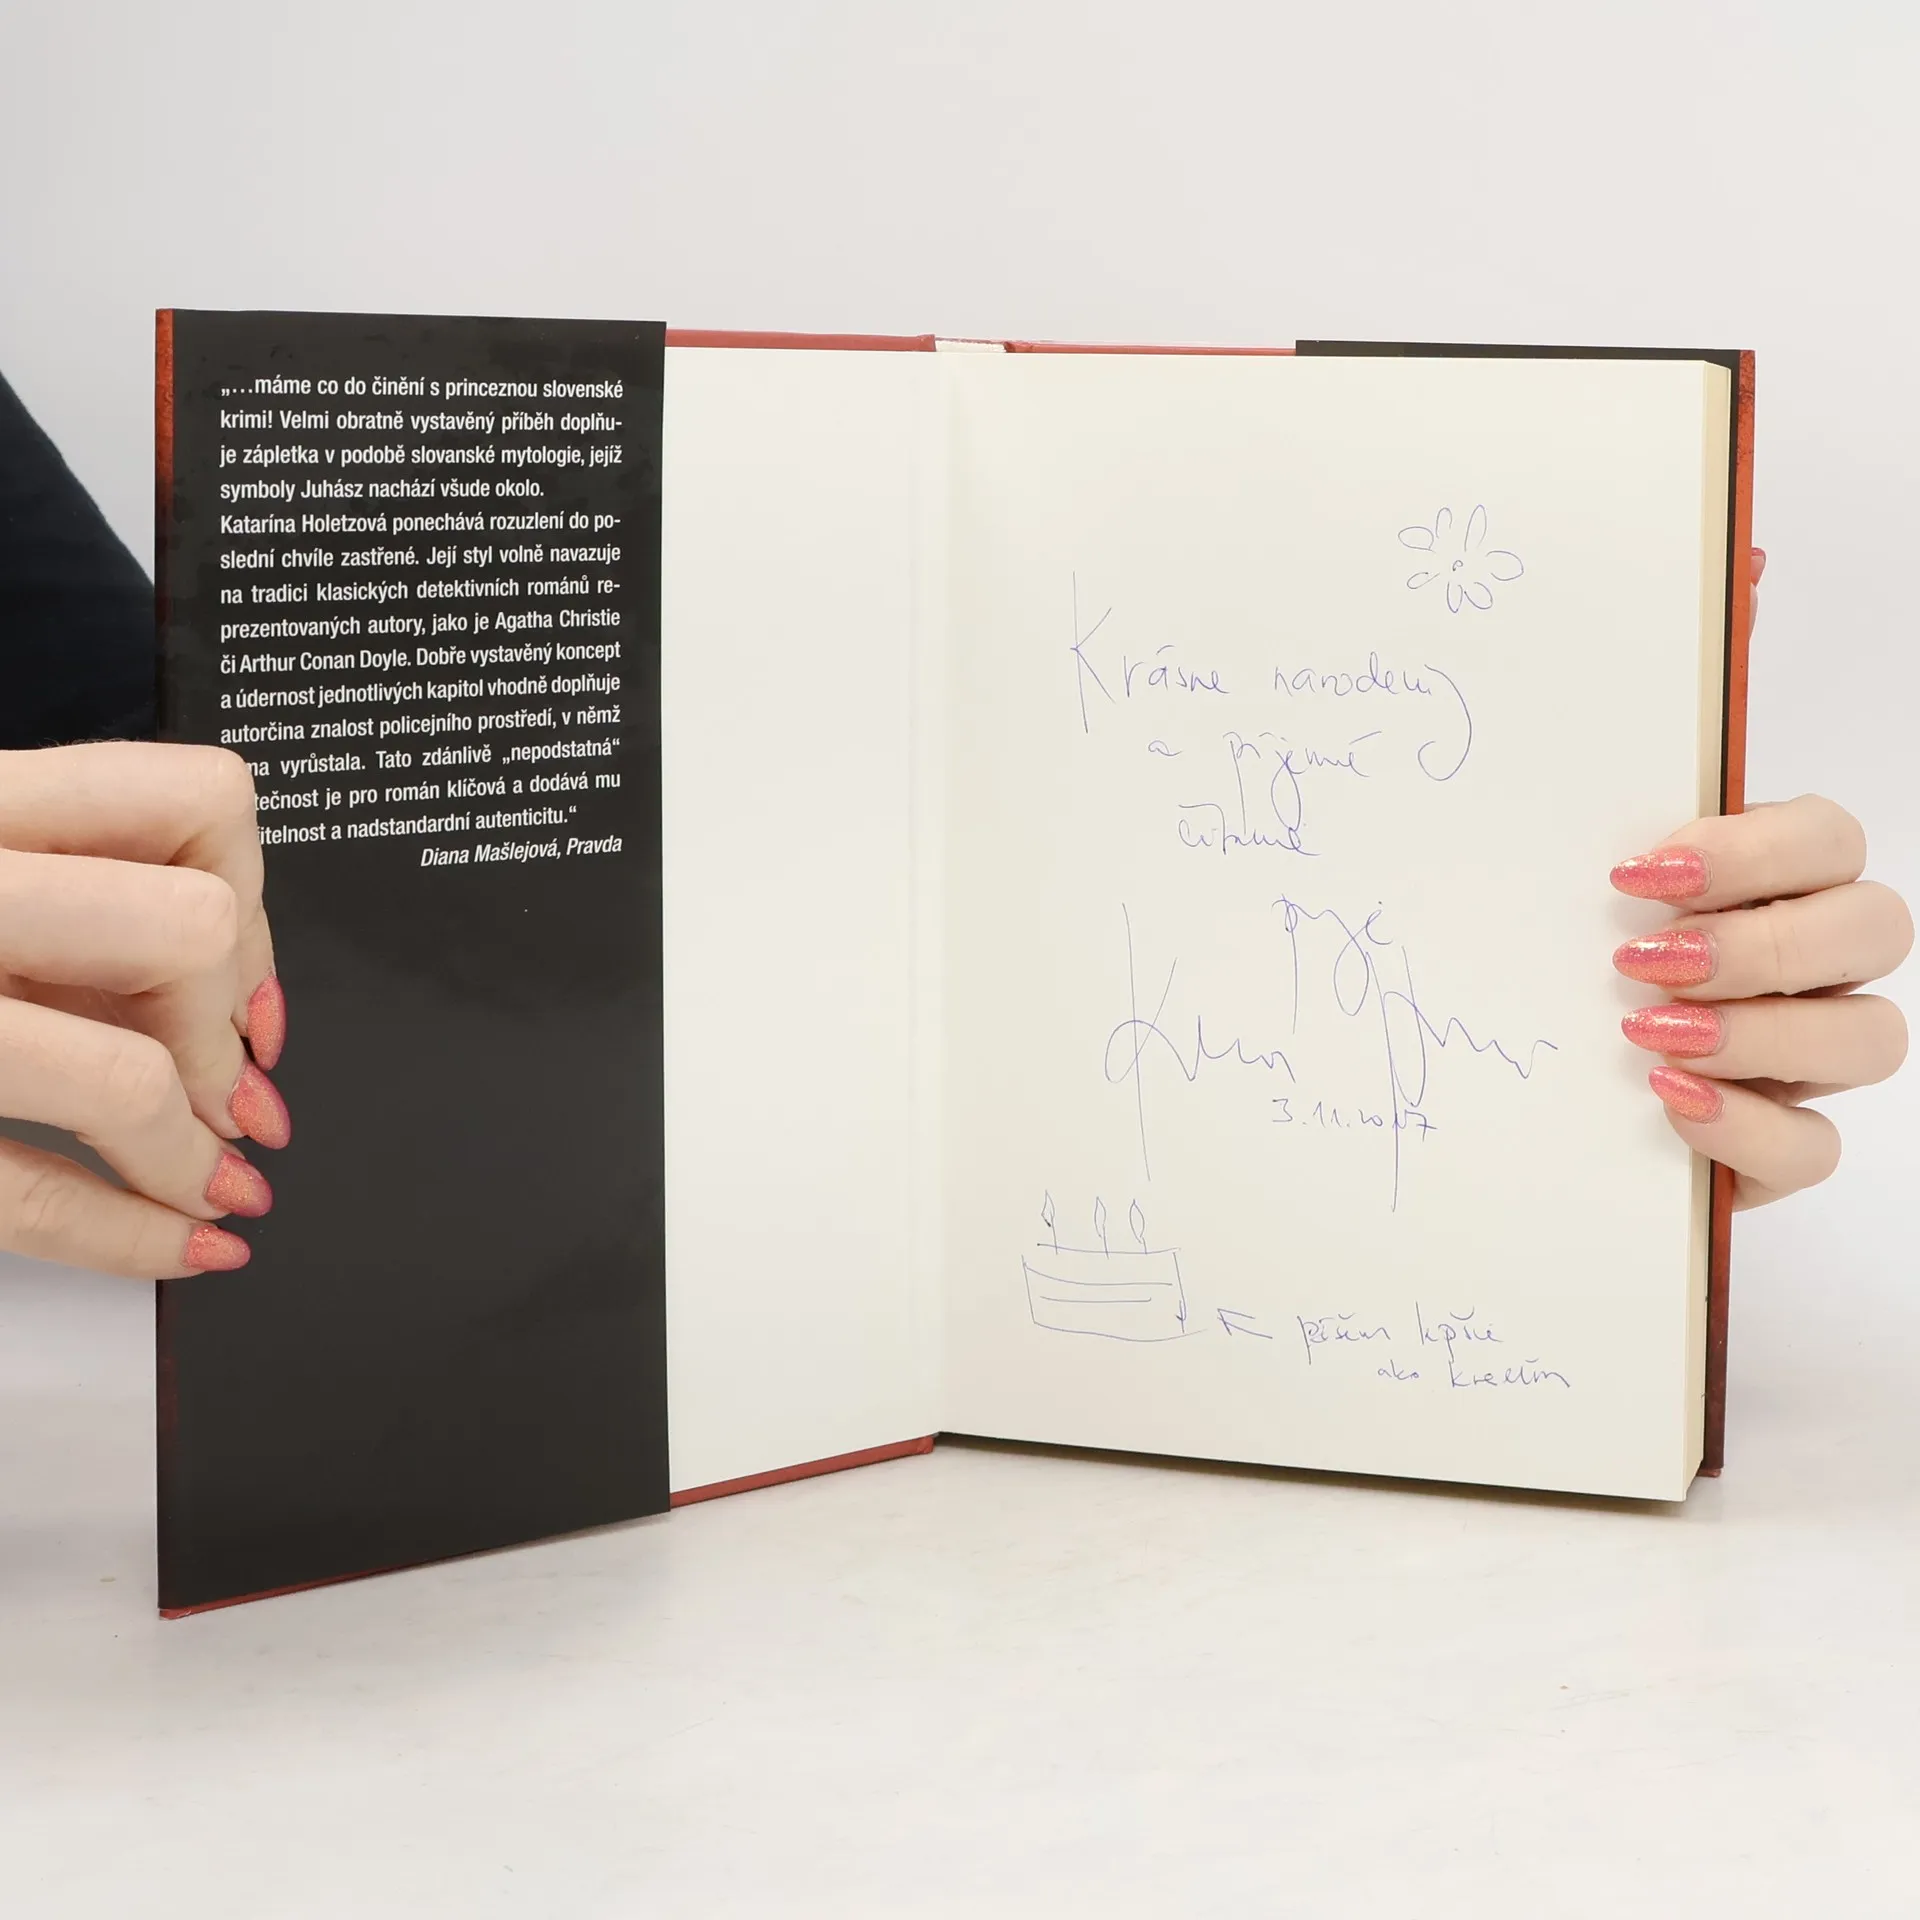 „…máme co do činění s princeznou slovenské
krimi! Velmi obratně vystavěný příběh doplňu-
je zápletka v podobě slovanské mytologie, jejíž
symboly Juhász nachází všude okolo.
Katarína Holetzová ponechává rozuzlení do po-
slední chvíle zastřené. Její styl volně navazuje
na tradici klasických detektivních románů re-
prezentovaných autory, jako je Agatha Christie
či Arthur Conan Doyle. Dobře vystavěný koncept
a údernost jednotlivých kapitol vhodně doplňuje
autorčina znalost policejního prostředí, v němž
vyrůstala. Tato zdánlivě „nepodstatná“
tečnost je pro román klíčová a dodává mu
itelnost a nadstandardní autenticitu.“
Diana Mašlejová, Pravda
Krásne narodeniny
a príjemné
čítanie
praje
3.11.2017
píšem lepšie
ako kreslím